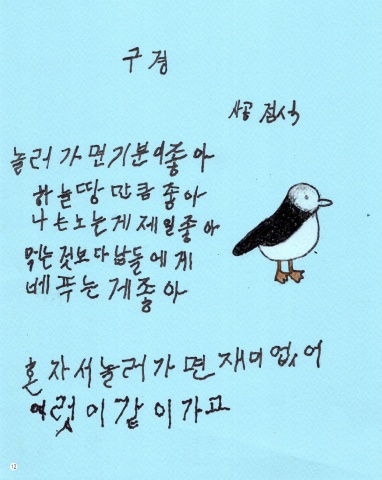 구경
사공 점석
놀러 가면 기분이 좋아
하늘 땅 만큼 좋아
나는 노는게 제일 좋아
먹는 것보다 남들에게
베푸는 게 좋아
혼자서 놀러가면 재미 없어
여럿이 같이 가고
12